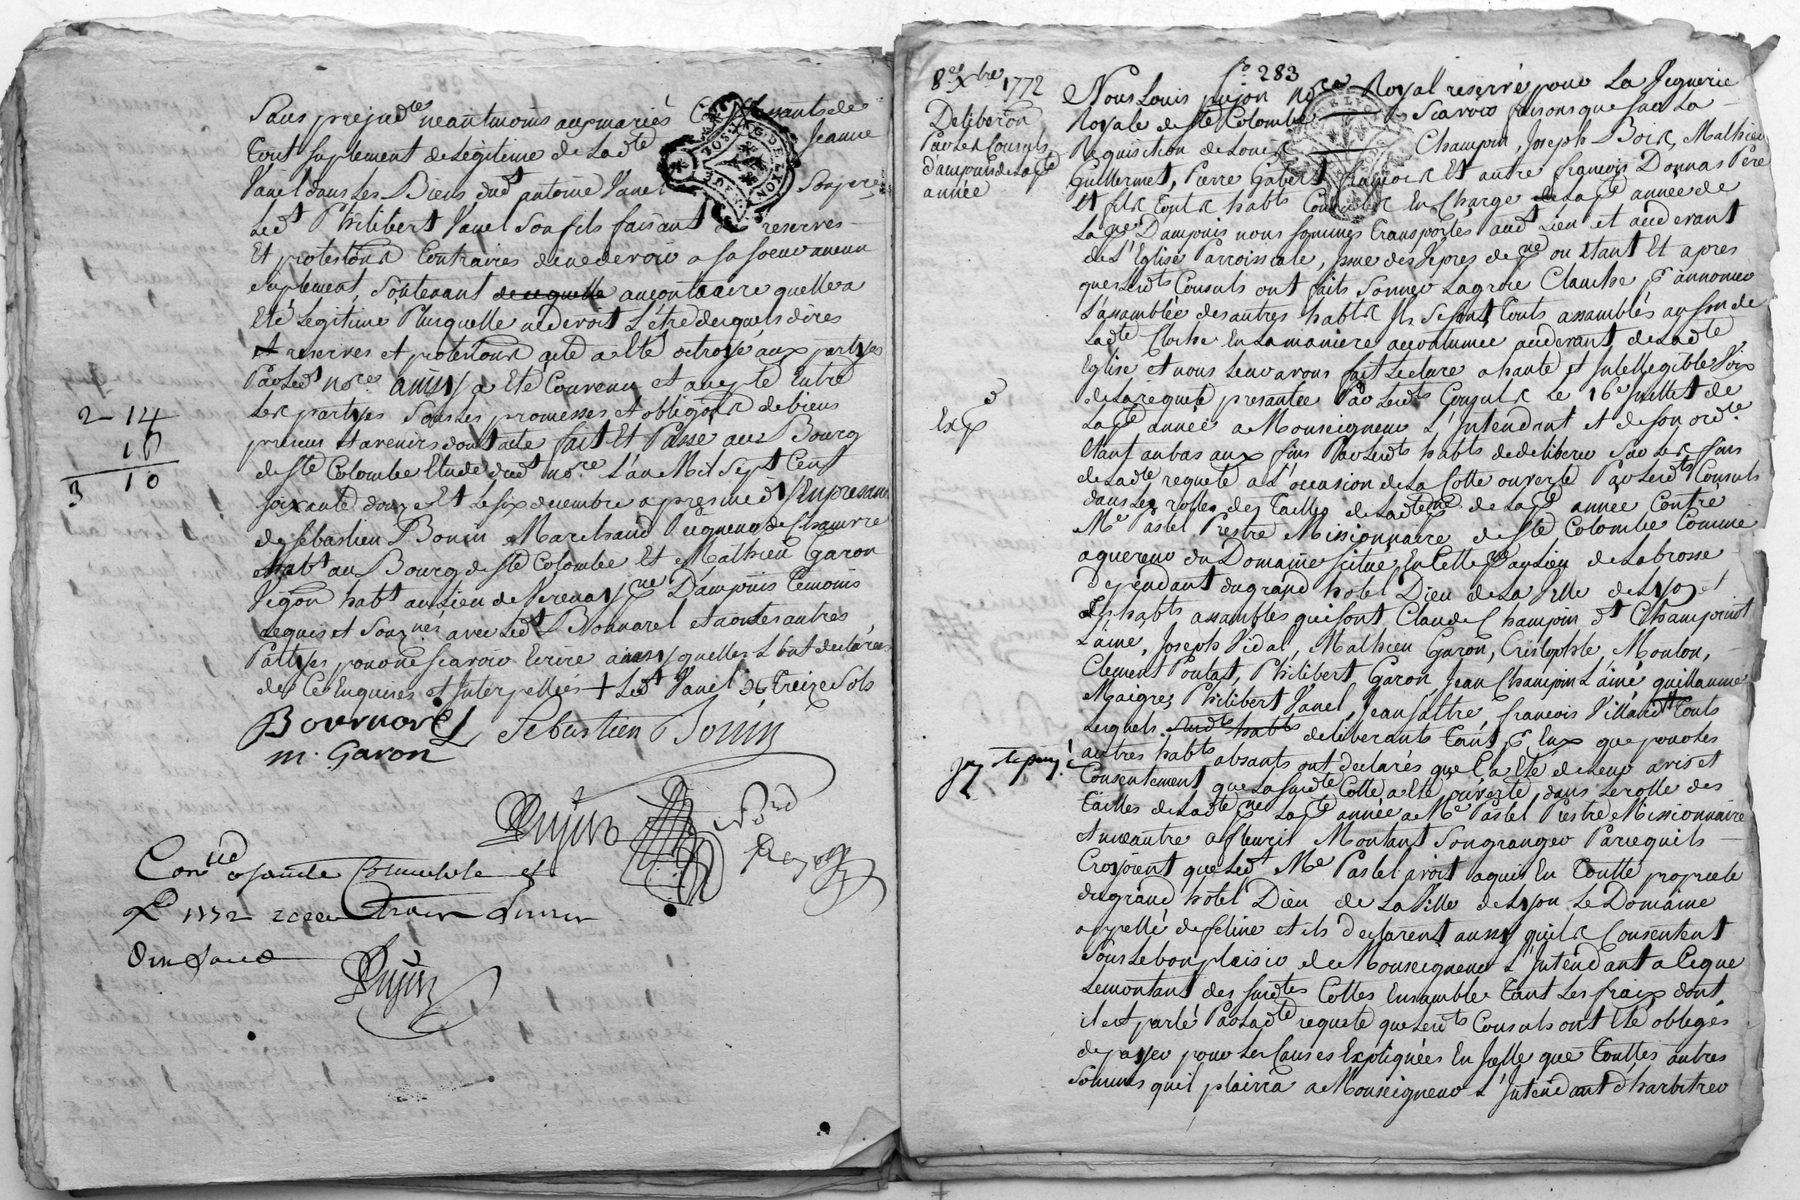 Sans prejudce neantmoins auxmariés
tout suplement de Légitime de Ladte Jeanne
Vanel dans Les Biens dudt antoine Vanel Son pere
Ledt Philibert Vanel Son fils faisant des reserves
Et protestons Contraires de ne devoir a Sa Soeur aucun
Suplement, Soutenant de ce quelle au contraire quelle a
Eté Legitimé Plus quelle ne devoit L'être desquels dires
Et reserves et protestons acte a eté octroyé aux partyes
Par Ledt nore ainsy a Eté Convenu et accepté Entre
2 - 14
Les partyes Sous Les promesses et obligons de biens
16
presens et avenirs dont acte fait Et Passé au Bourg
3 10
de Ste Colombe Etude dudt nore L'an Mil Sept Cent
Soixante douze Et Le Six decembre apres midi En presence
de Sébastien Bonin Marchand
habt au Bourg de Ste Colombe Et Mathieu Garon
Vigon habt au Lieu de Verenay Dampuis temoins
requis et Sougnés avec Ledt Bonnarel et non Les autres
Partyes pour ne Scavoir Ecrire ainsy quelles L'ont declarées
de Ce Enquises et Interpellées + Ledt Vanel treize Sols
Sebastien Bonin
m. Garon
Pujon
Conlé a Sainte Colombe
1772
Pujon
fo 283
8e Xbre 1772
Nous Louis pujon nore Royal reservé pour La
Deliberon
Royale de Ste Colombe Scavoir faisons que Sur La
Par Les Consuls
Requisition de Louis Champin, Joseph Boir, Mathieu
d'ampuis de La
Guillermet, Pierre Gabert Et autre françois Donnas Pere
année
Et fils tous habts Consuls En Charge de Lad année de
Dampuis nous Sommes transportés audt Lieu et audevant
de L'Eglise Parroissiale, Issue des Vepres ou Etant Et apres
que Lesdts Consuls ont faits Sonner La grose Cloche p annoncer
L'assamblée des autres habts Ils Se Sont touts assamblés au Son de
Ladte Cloche En La maniere accoutumée au devant de Ladte
Eglise et nous Leur avons fait Lecture a haute et Intellegible Voix
de La requete presantée Par Lesdts Consuls Le 16e Juillet de
Exp
année a Monseigneur L'Intendant et de Son ordce
Etant au bas aux fins Par Lesdts habts de deliberer Sur Les fins
de Ladte requete a L'occasion de La Cotte ouverte Par Lesdts Consuls
dans Les rolles des tailles de Ladte année Contre
Me Pastel Prestre Missionnaire de Ste Colombe Comme
aquereur du Domaine Situé En Cette au Lieu de Labrosse
dependant du grand hotel Dieu de La Ville de Lyon et
Les habts assamblés qui Sont Claude Champin dt Champinot
L'ainé, Joseph Vidal, Mathieu Garon, Cristophle Moulon,
Clement Poulat, Philibert Garon, Jean Champin L'ainé guillaume
Maigre, Philibert Vanel, Jean Faltre, françois Villard touts
Lesquels Susdts habts deliberants tant p Eux que pour Les
autres habts absants ont declarés que C'a Eté de Leur avis et
Consentement que La Susdte Cotte a Eté ouverte dans Le rolle des
tailles de Ladte année a Me Pastel Prestre Missionnaire
et une autre a fleuris Montant Son granger Parcequils
Croyoient que Ledt Me Pastel avoit aquis En toutte proprieté
du grand hotel Dieu de La Ville de Lyon Le Domaine
appellé de feline et ils declarent aussy quils Consentent
Sous Le bon plaisir de Monseigneur L'Intendant a Ce que
Le montant des Susdtes Cottes Ensamble tant Les fraix dont
il est parlé Par Ladte requete que Lesdts Consuls ont Eté obligés
de payer pour Les Causes Expliquées En Icelle que touttes autres
Sommes quil plairra a Monseigneur L'Intendant d'harbitrer